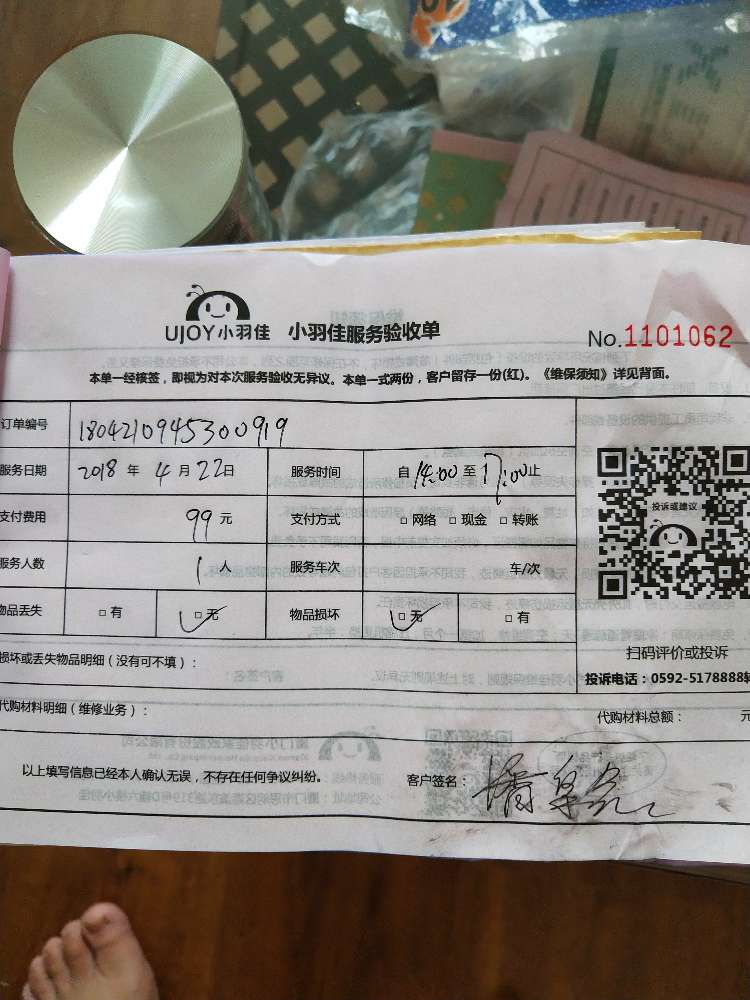 UJOY小羽佳 小羽佳服务验收单
No.1101062
本单一经核签，即视为对本次服务验收无异议。本单一式两份，客户留存一份(红)。《维保须知》详见背面。
订单编号 1804210945300919
服务日期 2018 年 4 月 22日 服务时间 自 14:00 至 17:00止
投诉或建议
支付费用 99 元 支付方式 □ 网络 □ 现金 □ 转账
服务人数 1 人 服务车次 车/次
物品丢失 □ 有 □ 无 物品损坏 □ 无 □ 有
扫码评价或投诉
损坏或丢失物品明细（没有可不填）：
投诉电话：0592-5178888转
代购材料明细（维修业务）： 代购材料总额： 元
以上填写信息已经本人确认无误，不存在任何争议纠纷。 客户签名：